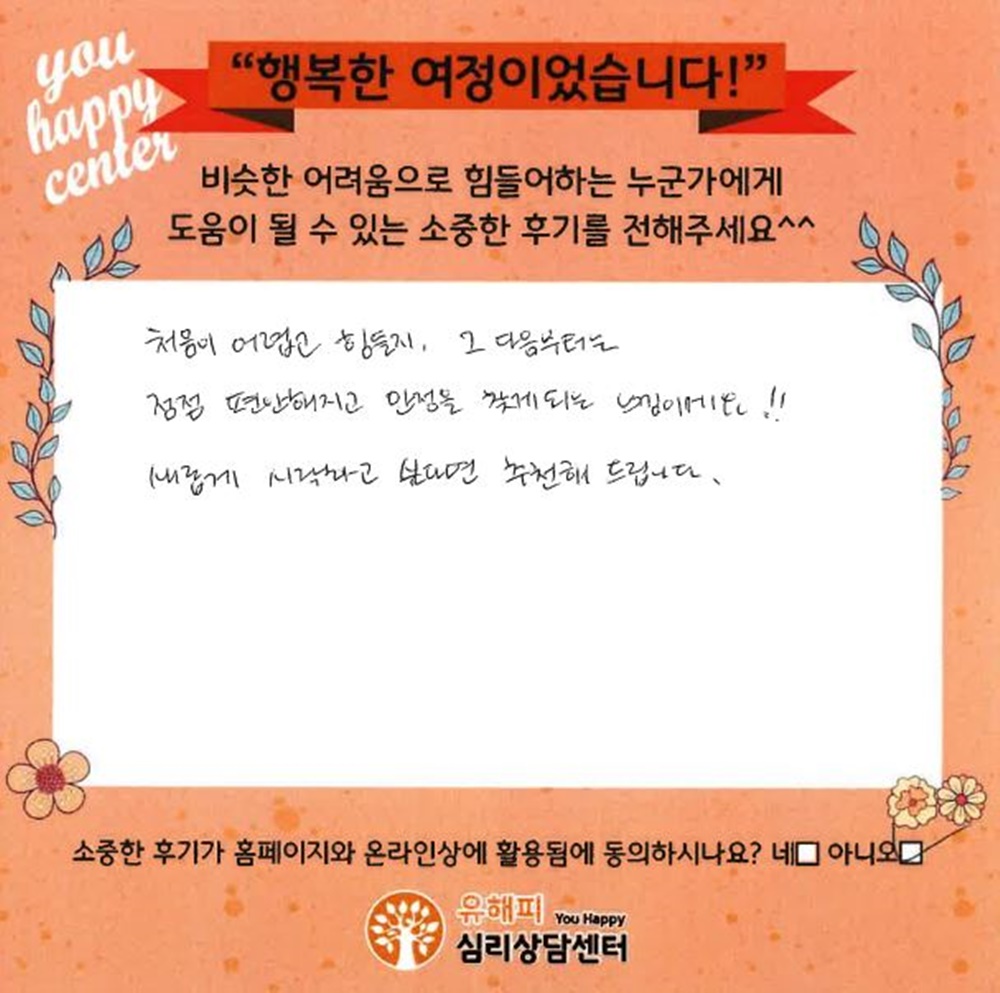 you
happy
center
“행복한 여정이었습니다!”
비슷한 어려움으로 힘들어하는 누군가에게
도움이 될 수 있는 소중한 후기를 전해주세요^^
처음이 어렵고 힘들지, 그 다음부터는
점점 편안해지고 안정을 찾게되는 느낌이에요!!
새롭게 시작하고 싶다면 추천해 드립니다.
소중한 후기가 홈페이지와 온라인상에 활용됨에 동의하시나요? 네□ 아니오□
유해피 You Happy
심리상담센터